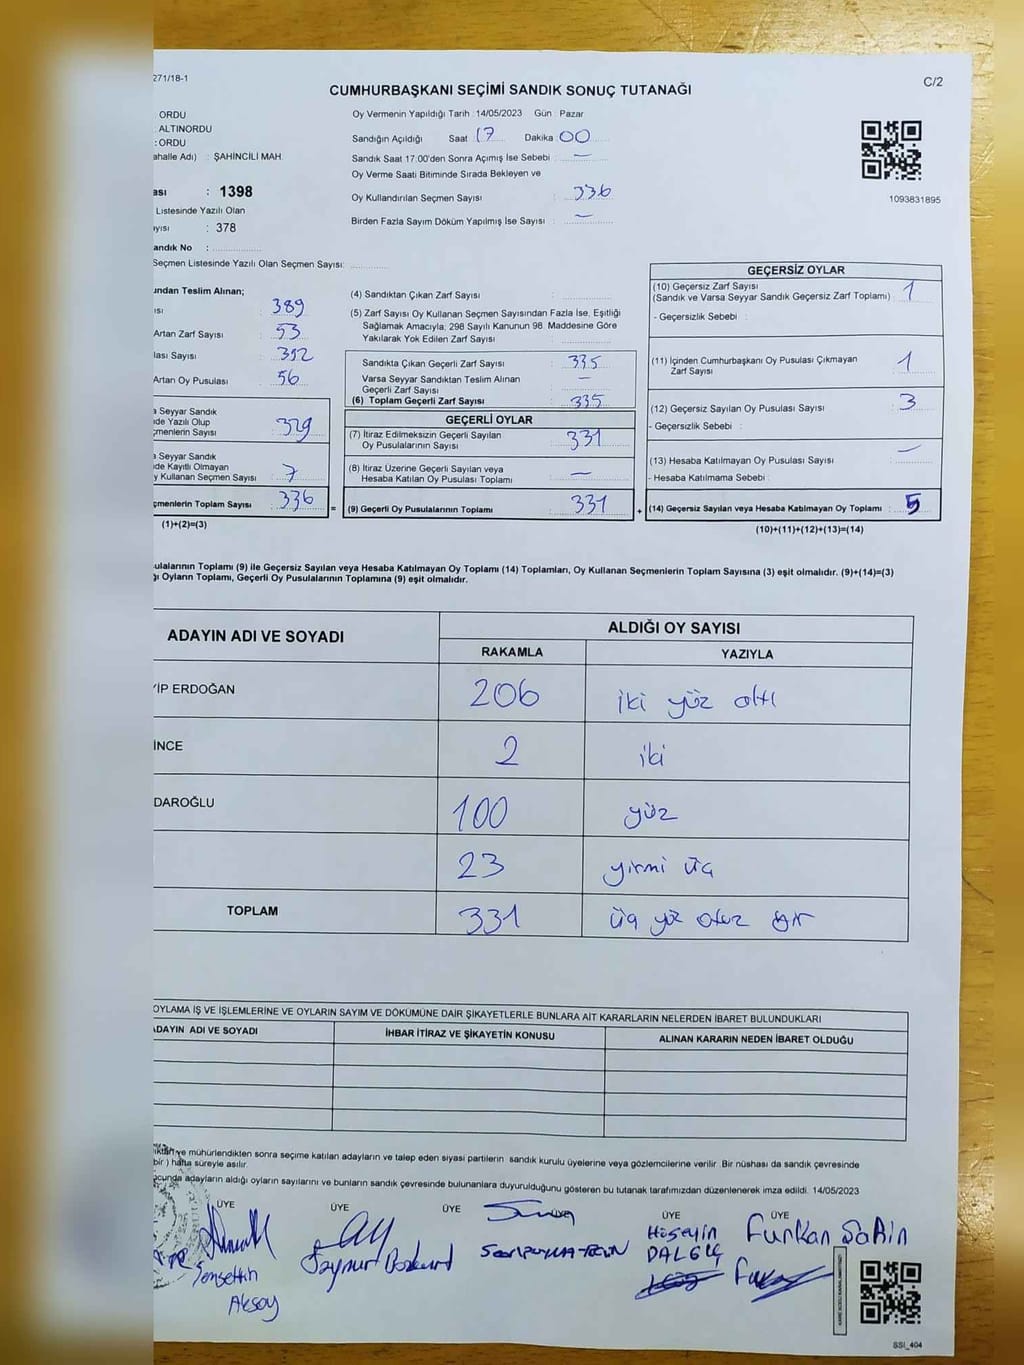 271/18-1
C/2
CUMHURBAŞKANI SEÇİMİ SANDIK SONUÇ TUTANAĞI
ORDU
: ALTINORDU
: ORDU
ahalle Adı) : ŞAHİNCİLİ MAH.
ası : 1398
Listesinde Yazılı Olan
ayısı : 378
andık No :
Seçmen Listesinde Yazılı Olan Seçmen Sayısı:
Oy Vermenin Yapıldığı Tarih : 14/05/2023 Gün : Pazar
Sandığın Açıldığı Saat 17 Dakika 00
Sandık Saat 17:00'den Sonra Açımış İse Sebebi : —
Oy Verme Saati Bitiminde Sırada Bekleyen ve
Oy Kullandırılan Seçmen Sayısı : 336
Birden Fazla Sayım Döküm Yapılmış İse Sayısı : —
1093831895
ından Teslim Alınan;
ısı : 389
Artan Zarf Sayısı : 53
lası Sayısı : 392
Artan Oy Pusulası : 56
a Seyyar Sandık
de Yazılı Olup
çmenlerin Sayısı : 329
a Seyyar Sandık
de Kayıtlı Olmayan
y Kullanan Seçmen Sayısı : 7
çmenlerin Toplam Sayısı : 336 =
(1)+(2)=(3)
(4) Sandıktan Çıkan Zarf Sayısı :
(5) Zarf Sayısı Oy Kullanan Seçmen Sayısından Fazla İse, Eşitliği
Sağlamak Amacıyla; 298 Sayılı Kanunun 98. Maddesine Göre
Yakılarak Yok Edilen Zarf Sayısı :
Sandıkta Çıkan Geçerli Zarf Sayısı : 335
Varsa Seyyar Sandıktan Teslim Alınan
Geçerli Zarf Sayısı : —
(6) Toplam Geçerli Zarf Sayısı : 335
GEÇERLİ OYLAR
(7) İtiraz Edilmeksizin Geçerli Sayılan
Oy Pusulalarının Sayısı : 331
(8) İtiraz Üzerine Geçerli Sayılan veya
Hesaba Katılan Oy Pusulası Toplamı : —
(9) Geçerli Oy Pusulalarının Toplamı : 331 +
GEÇERSİZ OYLAR
(10) Geçersiz Zarf Sayısı
(Sandık ve Varsa Seyyar Sandık Geçersiz Zarf Toplamı) : 1
- Geçersizlik Sebebi :
(11) İçinden Cumhurbaşkanı Oy Pusulası Çıkmayan
Zarf Sayısı : 1
(12) Geçersiz Sayılan Oy Pusulası Sayısı : 3
- Geçersizlik Sebebi :
(13) Hesaba Katılmayan Oy Pusulası Sayısı : —
- Hesaba Katılmama Sebebi :
(14) Geçersiz Sayılan veya Hesaba Katılmayan Oy Toplamı : 5
(10)+(11)+(12)+(13)=(14)
ulalarının Toplamı (9) ile Geçersiz Sayılan veya Hesaba Katılmayan Oy Toplamı (14) Toplamları, Oy Kullanan Seçmenlerin Toplam Sayısına (3) eşit olmalıdır. (9)+(14)=(3)
ğı Oyların Toplamı, Geçerli Oy Pusulalarının Toplamına (9) eşit olmalıdır.
ADAYIN ADI VE SOYADI ALDIĞI OY SAYISI
RAKAMLA YAZIYLA
YİP ERDOĞAN 206 iki yüz altı
İNCE 2 iki
DAROĞLU 100 yüz
23 yirmi üç
TOPLAM 331 üç yüz otuz bir
OYLAMA İŞ VE İŞLEMLERİNE VE OYLARIN SAYIM VE DÖKÜMÜNE DAİR ŞİKAYETLERLE BUNLARA AİT KARARLARIN NELERDEN İBARET BULUNDUKLARI
ADAYIN ADI VE SOYADI İHBAR İTİRAZ VE ŞİKAYETİN KONUSU ALINAN KARARIN NEDEN İBARET OLDUĞU
ktan ve mühürlendikten sonra seçime katılan adayların ve talep eden siyasi partilerin sandık kurulu üyelerine veya gözlemcilerine verilir. Bir nüshası da sandık çevresinde
bir ) hafta süreyle asılır.
ucunda adayların aldığı oyların sayılarını ve bunların sandık çevresinde bulunanlara duyurulduğunu gösteren bu tutanak tarafımızdan düzenlenerek imza edildi. 14/05/2023
ÜYE ÜYE ÜYE ÜYE ÜYE ÜYE
Şemsettin
Aksoy
Hüseyin
DALGIÇ
Furkan Şahin
SSI_404